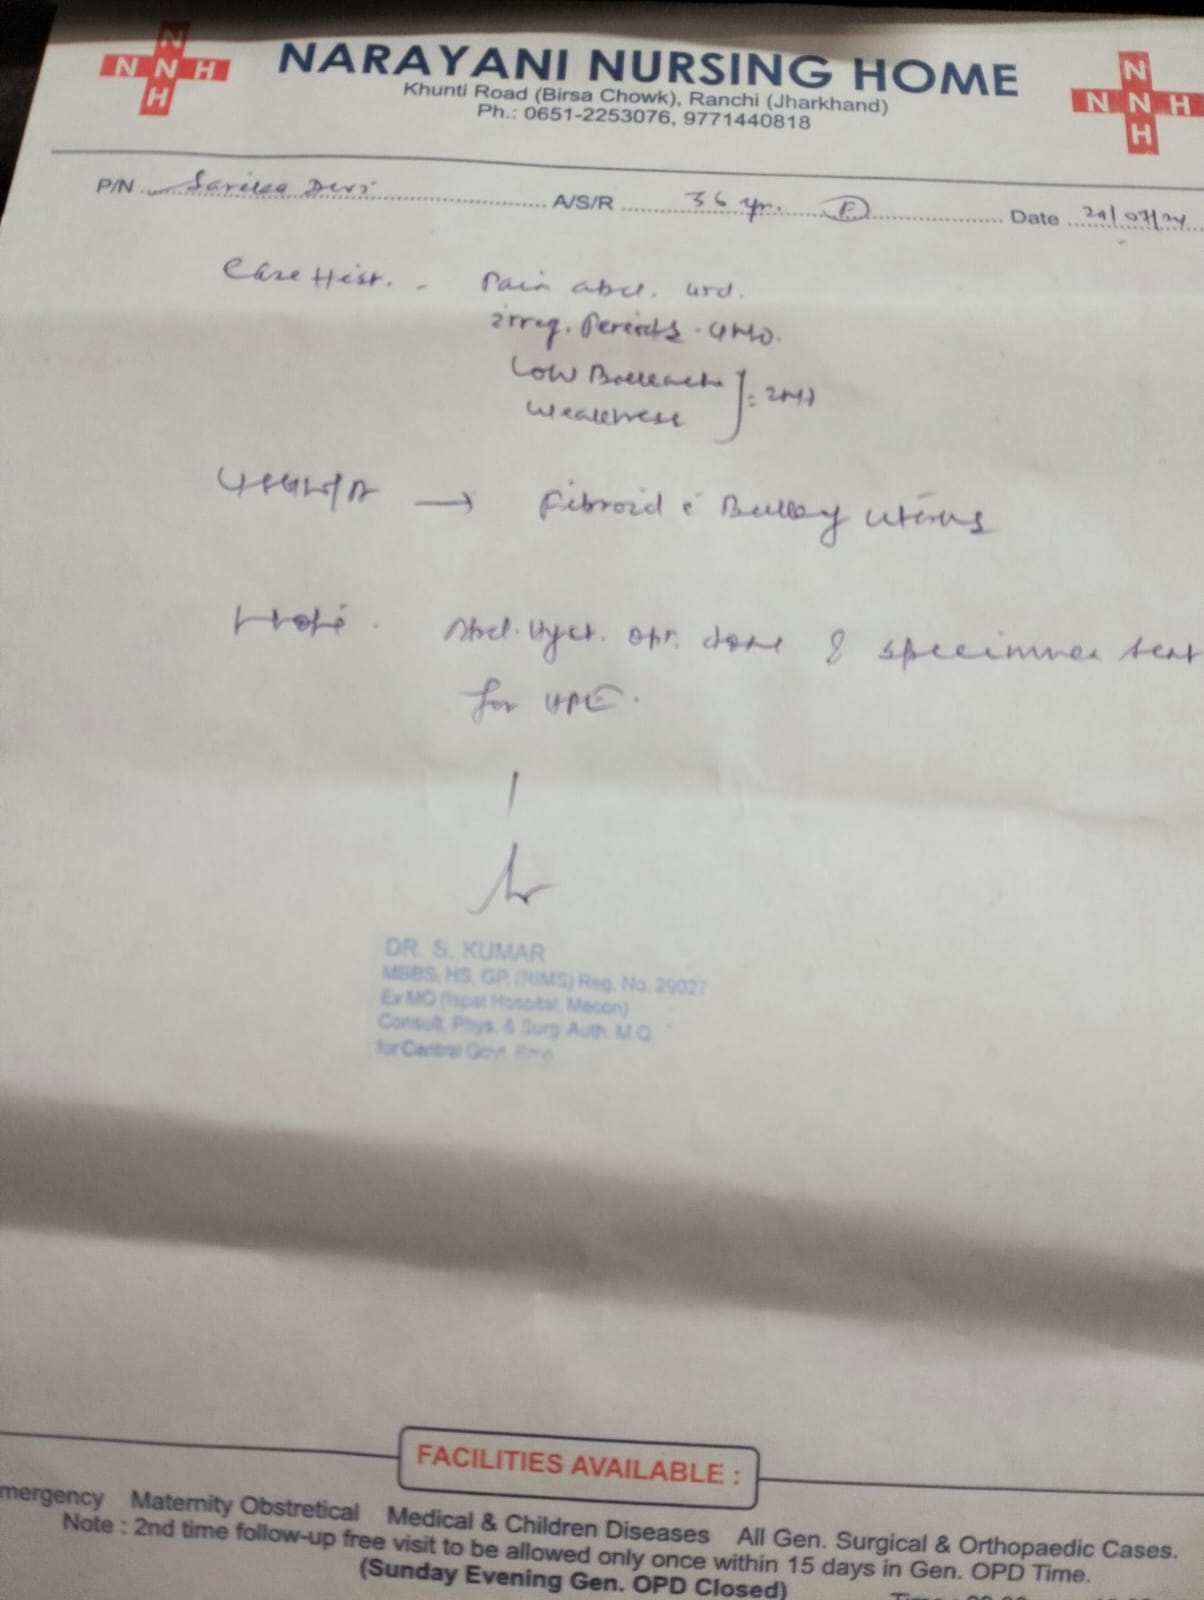 N
N N H
H
NARAYANI NURSING HOME
Khunti Road (Birsa Chowk), Ranchi (Jharkhand)
Ph.: 0651-2253076, 9771440818
N
N N H
H
P/N Devi A/S/R 36 yr. F Date 29/07/24
Case Hist. - Pain abd.
Irreg. Periods. 4Mo.
Low Backache
Weakness
→ Fibroid c̄ Bulky uterus
Abd. Hyst. opr. done & specimen sent
for HPE.
DR. S. KUMAR
MBBS, HS, GP, (RIMS) Reg. No. 29027
Ex MO (Ispat Hospital, Mecon)
Consult. Phys. & Surg. Auth. M.O.
for Central Govt. Emp.
FACILITIES AVAILABLE :
mergency Maternity Obstretical Medical & Children Diseases All Gen. Surgical & Orthopaedic Cases.
Note : 2nd time follow-up free visit to be allowed only once within 15 days in Gen. OPD Time.
(Sunday Evening Gen. OPD Closed)